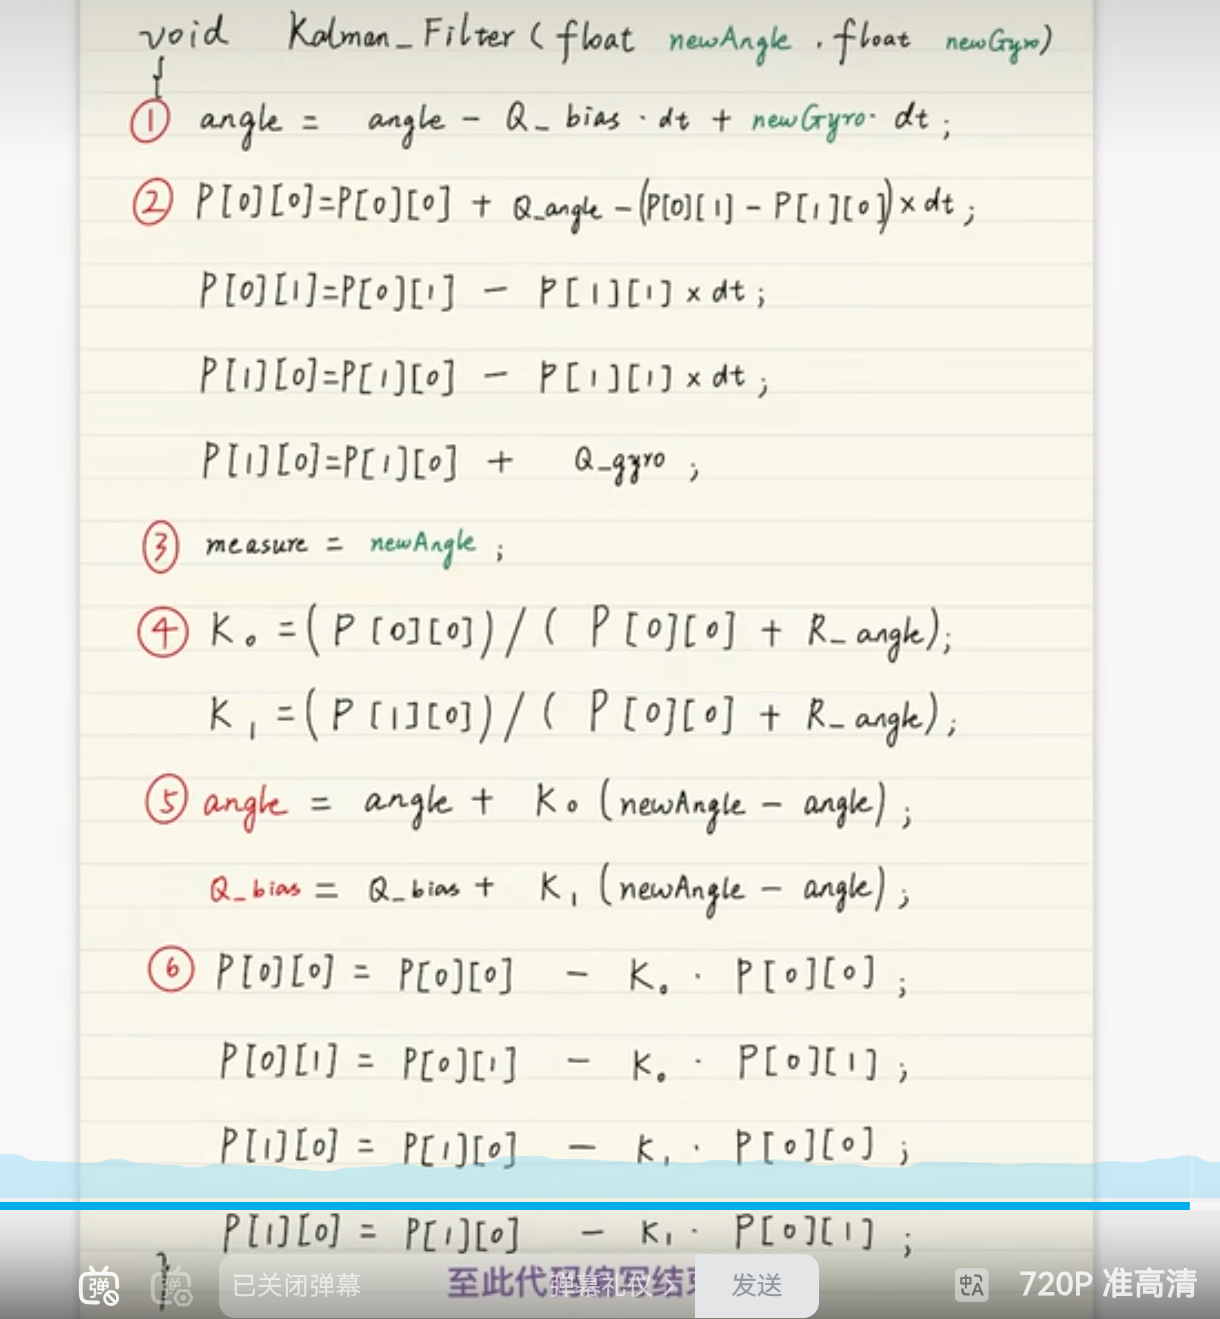 void Kalman_Filter ( float newAngle , float newGyro)
{
① angle = angle - Q_bias · dt + newGyro · dt ;
② P[0][0]=P[0][0] + Q_angle - (P[0][1] - P[1][0]) × dt ;
P[0][1]=P[0][1] - P[1][1] × dt ;
P[1][0]=P[1][0] - P[1][1] × dt ;
P[1][0]=P[1][0] + Q_gyro ;
③ measure = newAngle ;
④ K0 = ( P[0][0]) / ( P[0][0] + R_angle) ;
K1 = ( P[1][0]) / ( P[0][0] + R_angle) ;
⑤ angle = angle + K0 (newAngle - angle) ;
Q_bias = Q_bias + K1 (newAngle - angle) ;
⑥ P[0][0] = P[0][0] - K0 · P[0][0] ;
P[0][1] = P[0][1] - K0 · P[0][1] ;
P[1][0] = P[1][0] - K1 · P[0][0] ;
P[1][0] = P[1][0] - K1 · P[0][1] ;
}
至此代码编写结束
弹 弹 已关闭弹幕 弹幕礼仪 > 发送 720P 准高清